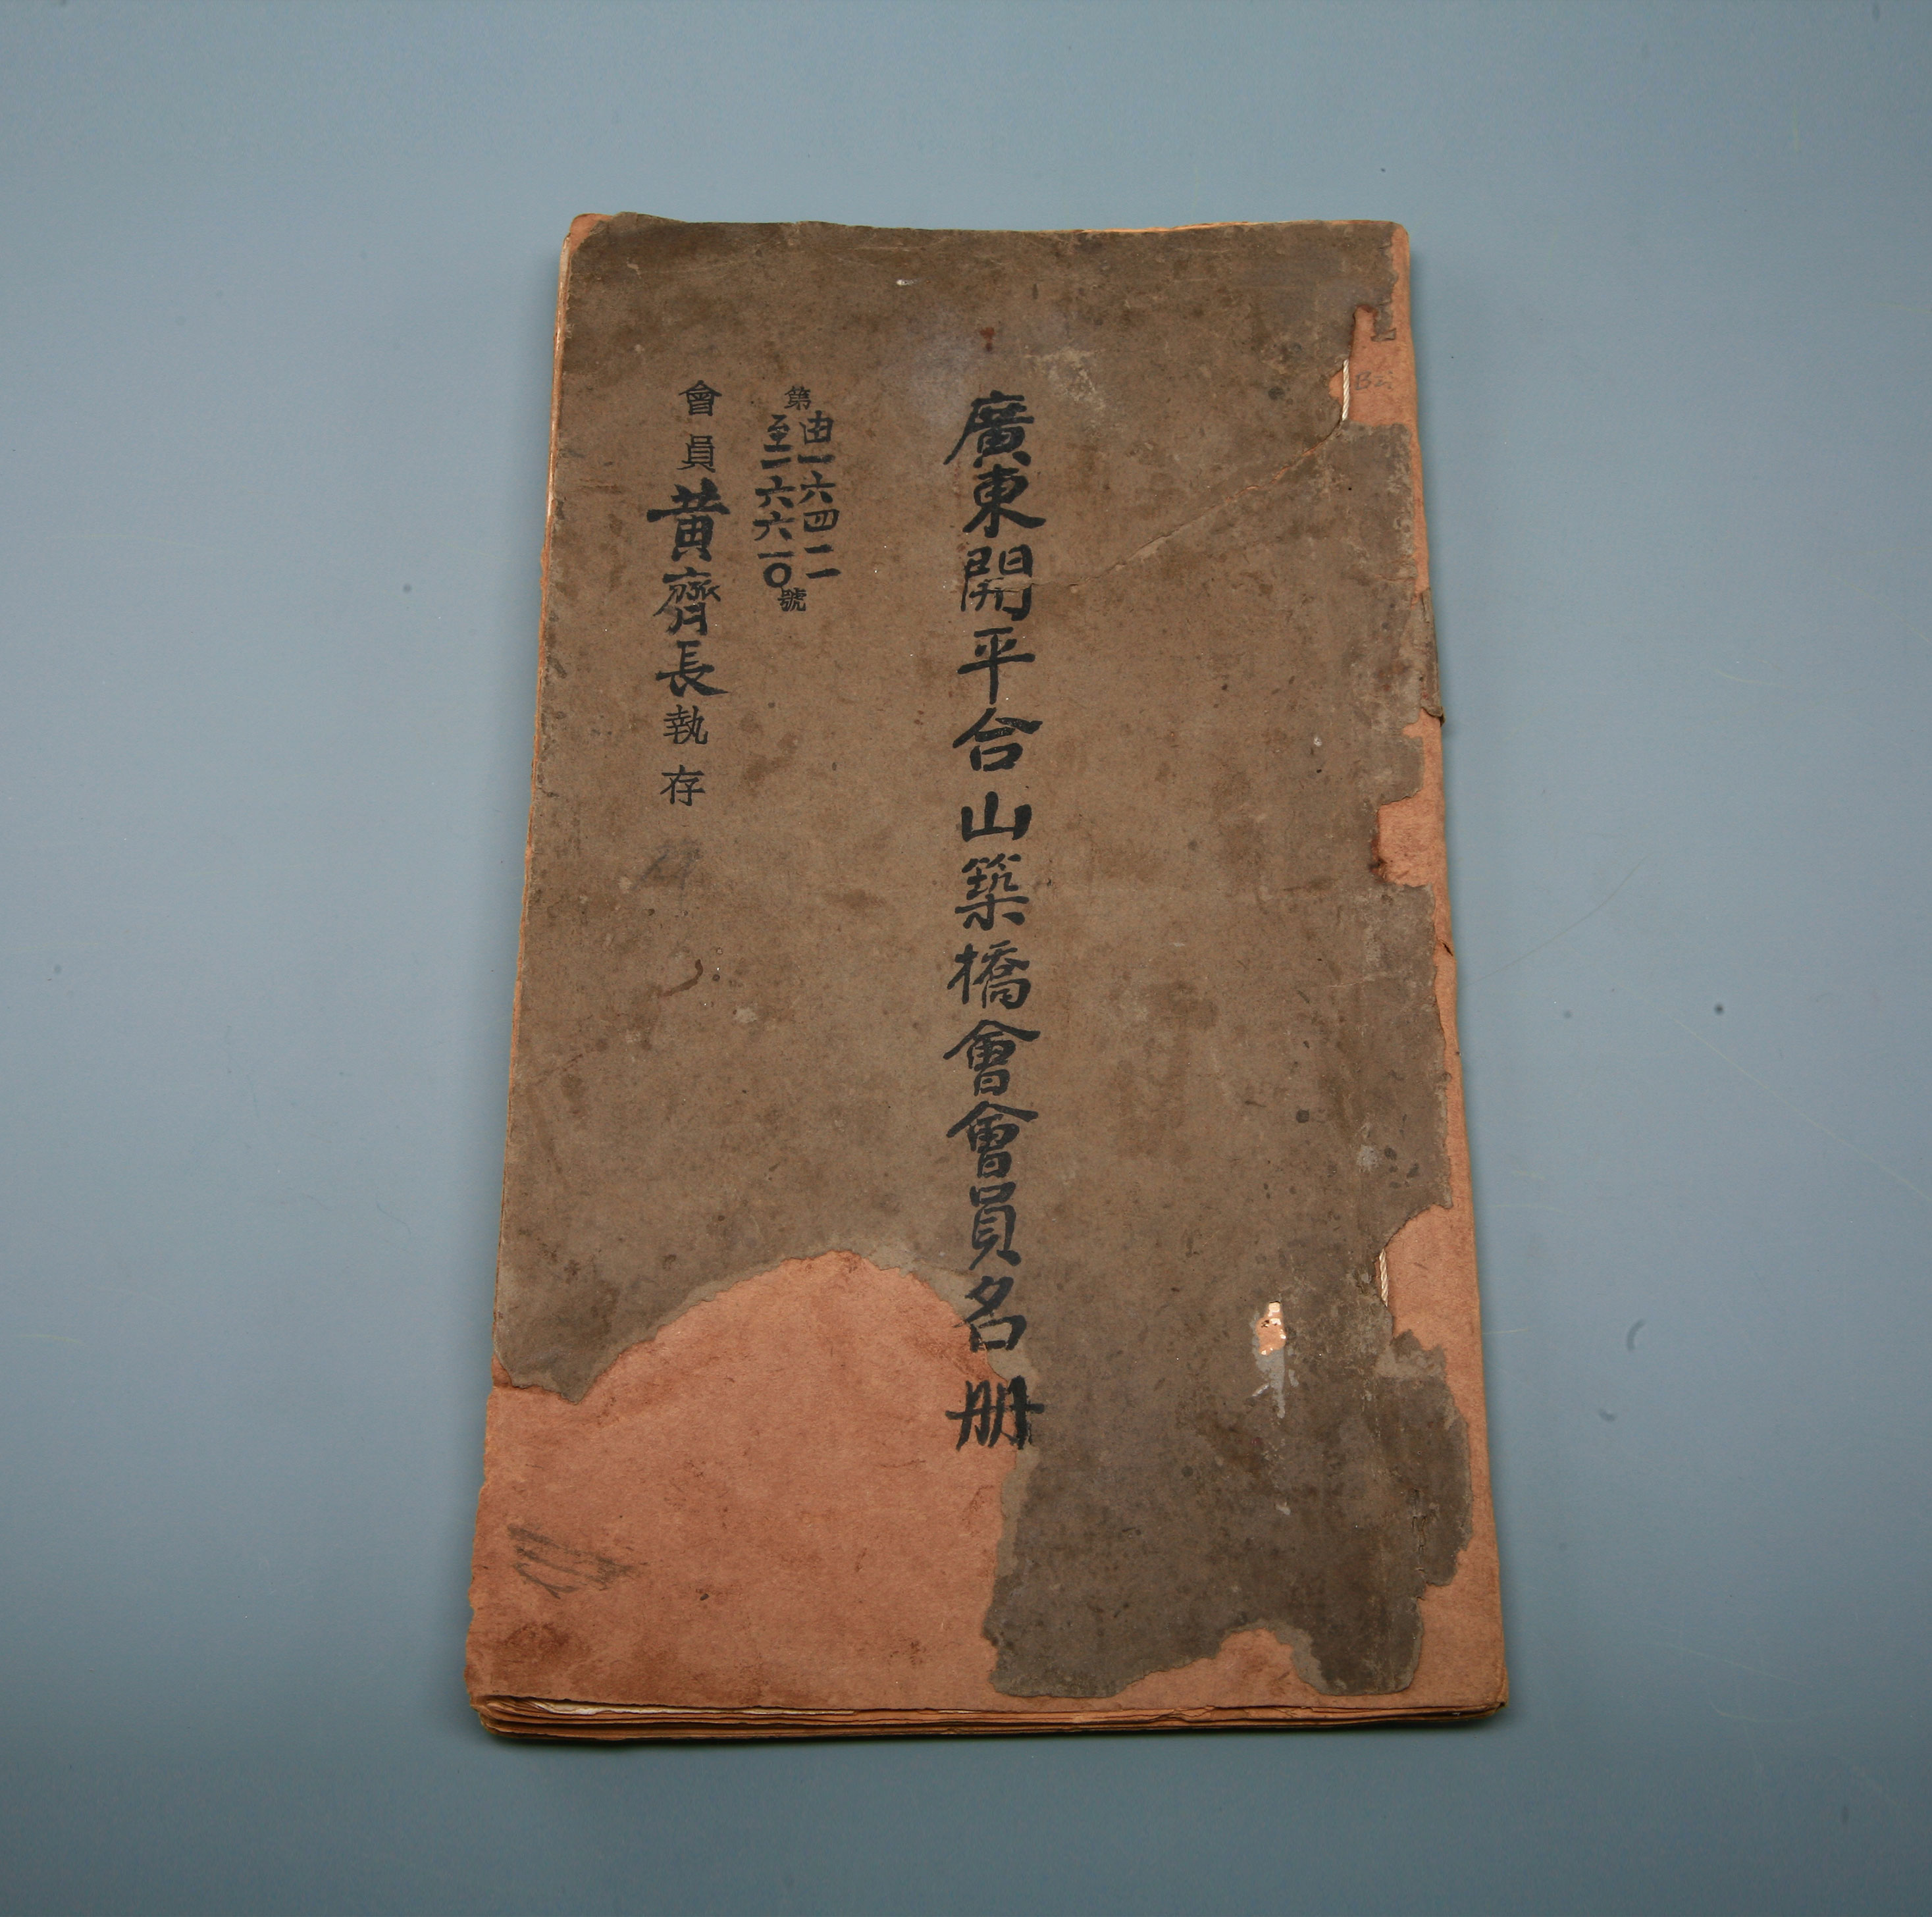 廣東開平合山築橋會會員名册
第
由一六四一一
至一六六一〇
號
會員黃齊長執存